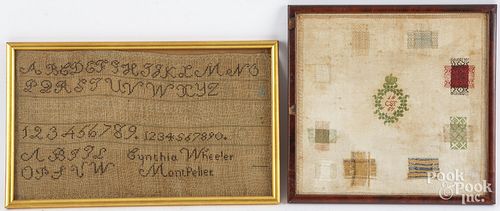 ABCDEFGHIJKLMNO
PQRSTUVWXYZ
123456789. 1234567890.
ABIJL Cynthia Wheeler
OPSUVW Montpelier
Pook & Pook Inc.